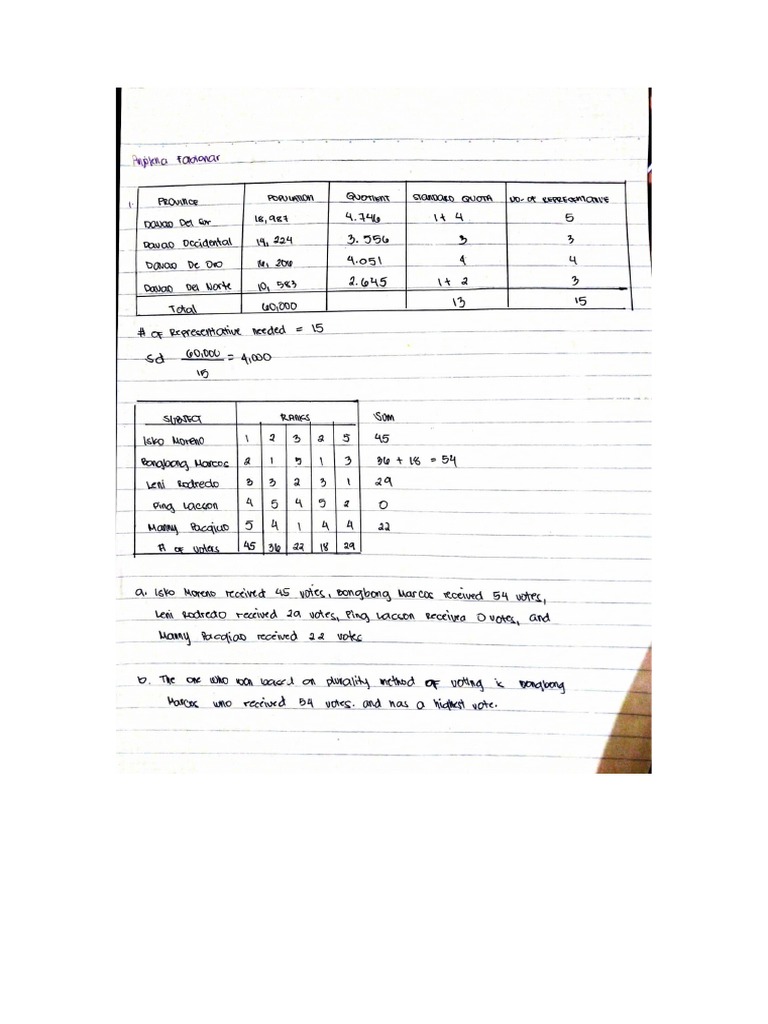 Anjelena Fabionar
1. PROVINCE POPULATION QUOTIENT STANDARD QUOTA NO. OF REPRESENTATIVE
Davao Del Sur 18,987 4.746 1+ 4 5
Davao Occidental 14, 224 3. 556 3 3
Davao De Oro 16, 206 4.051 4 4
Davao Del Norte 10, 583 2.645 1+ 2 3
Total 60,000 13 15
# of Representative needed = 15
Sd 60,000 = 4,000
15
SUBJECT RANKS Sum
Isko Moreno 1 2 3 2 5 45
Bongbong Marcos 2 1 5 1 3 36 + 18 = 54
Leni Rodredo 3 3 2 3 1 29
Ping Lacson 4 5 4 5 2 0
Manny Pacqiao 5 4 1 4 4 22
# of voters 45 36 22 18 29
a. Isko Moreno received 45 votes, Bongbong Marcos received 54 votes,
Leni Rodredo received 29 votes, Ping Lacson Received 0 votes, and
Manny Pacqiao received 22 votes
b. The one who won based on plurality method of voting is Bongbong
Marcos who received 54 votes. and has a highest vote.